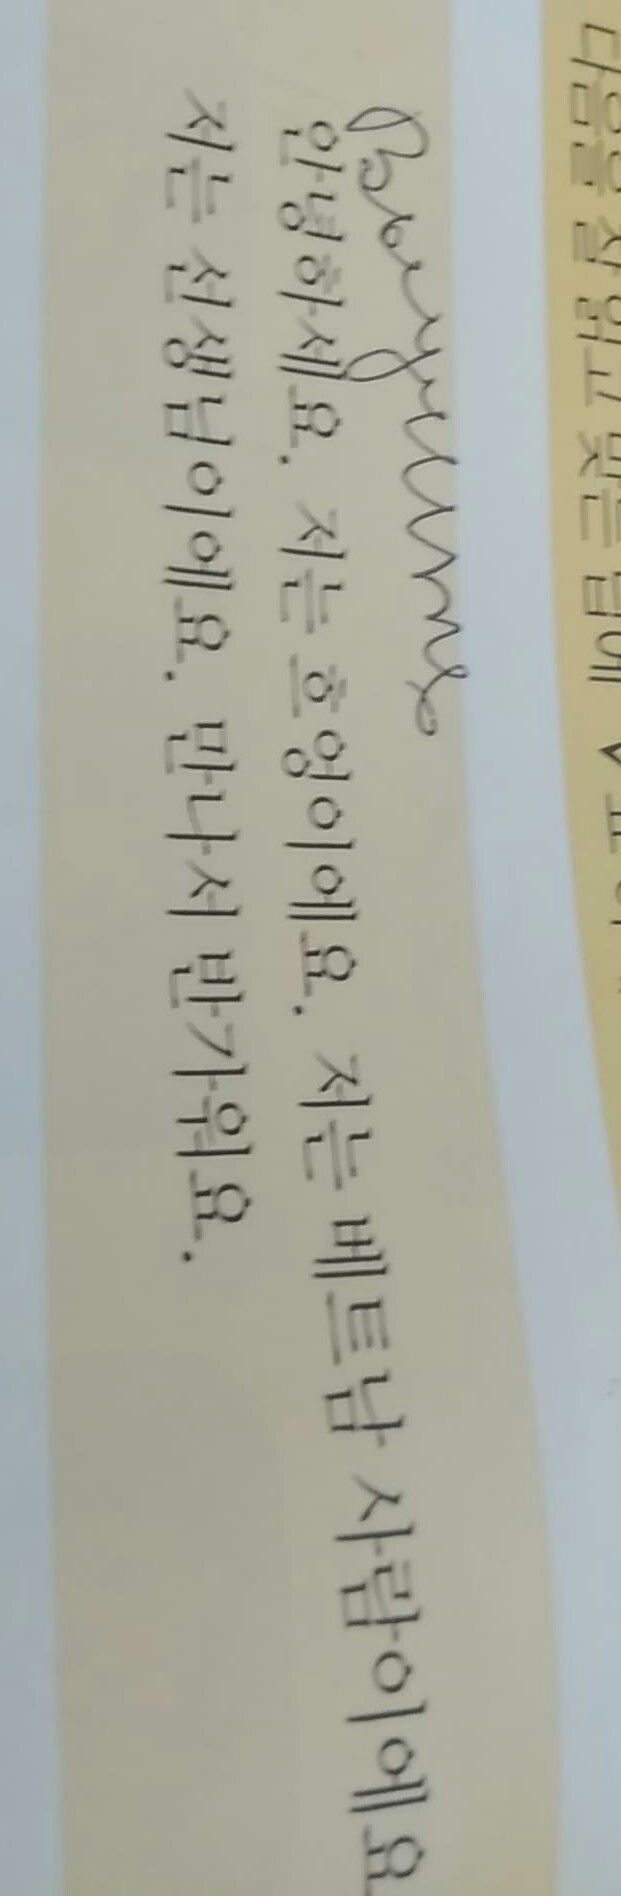 다음을 잘 읽고 맞는 답에 ✓ 표
안녕하세요. 저는 흐엉이에요. 저는 베트남 사람이에요
저는 선생님이에요. 만나서 반가워요.